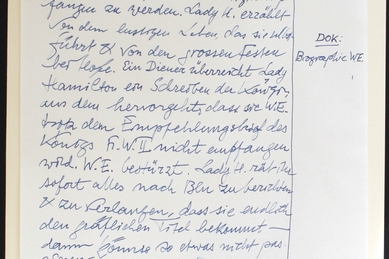 fangen zu werden. Lady H. erzählt
von dem lustigen Leben, das sie hier
führt & von den grossen Festen
bei Hofe. Ein Diener überreicht Lady
Hamilton ein Schreiben der Königin,
aus dem hervorgeht, dass sie W.E.
trotz dem Empfehlungsbrief des
Königs F.W.II nicht empfangen
wird. W.E. bestürzt. Lady H. rät ihr
sofort alles nach Bln zu berichten
& zu verlangen, dass sie endlich
den gräflichen Titel bekommt —
dann könne so etwas nicht pas-
DOK:
Biographie WE